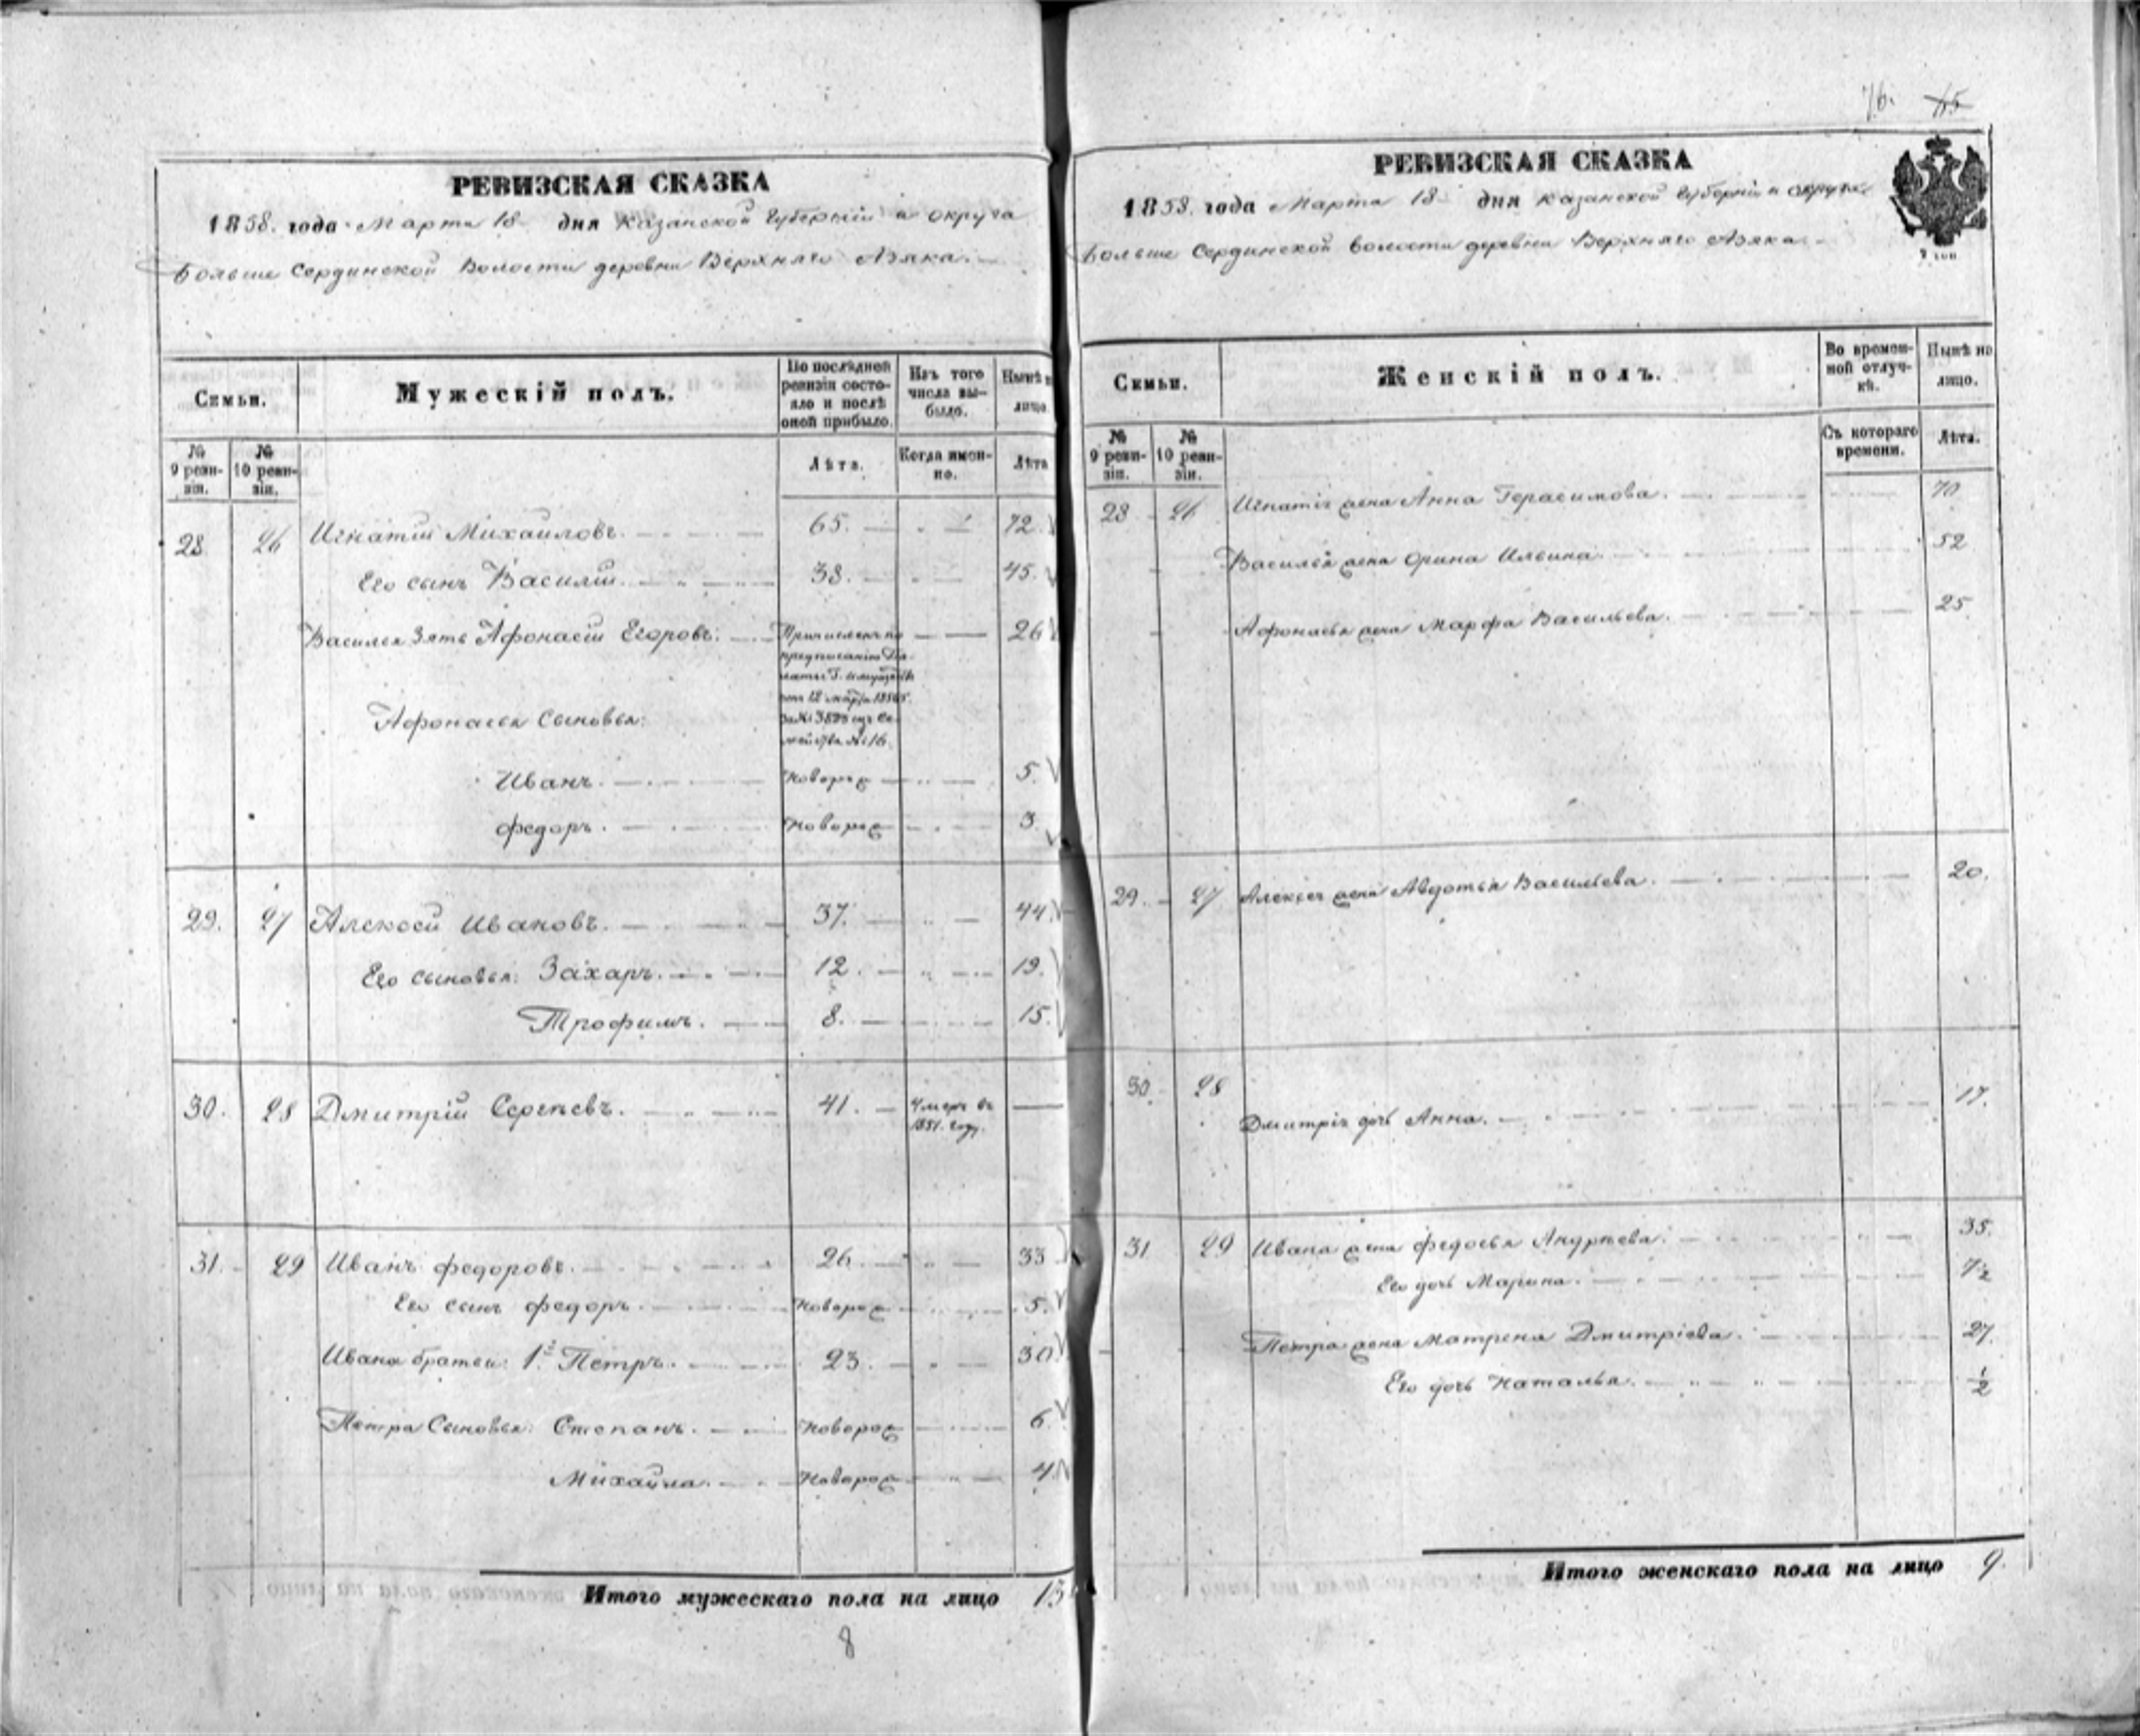 РЕВИЗСКАЯ СКАЗКА
1858. года Марта 18 дня Казанской Губернии и округа
Больше Сердинской Волости деревни Верхняго Азяка.
Семьи.
Мужескій полъ.
По послѣдней ревизіи состояло и послѣ оной прибыло.
Изъ того числа выбыло.
Нынѣ на лицо.
№ 9 ревизіи.
№ 10 ревизіи.
Лѣта.
Когда именно.
Лѣта
28. 26 Игнатій Михайловъ. 65. 72.
Его сынъ Василій. 38. 45.
Василья Зять Афонасій Егоровъ. Причисленъ по 26
предписанію Палаты Г. имуществ
отъ 12 марта
за № из се
мейства № 16.
Афонасья Сыновья:
Иванъ. Новорož 5.
Федоръ. Новорож 3.
29. 27 Алексѣй Ивановъ. 37. 44.
Его сыновья: Захаръ. 12. 19.
Трофимъ. 8. 15.
30. 28 Дмитрій Сергѣевъ. 41. Умеръ въ
1851. году.
31. 29 Иванъ Федоровъ. 26. 33
Его сынъ Федоръ. Новорож 5.
Ивана братья: 1й Петръ. 23. 30.
Петра Сыновья: Степанъ. Новорож 6.
Михайла. Новорож 4.
Итого мужескаго пола на лицо 13
8
76. 65
РЕВИЗСКАЯ СКАЗКА
1858. года Марта 18 дня Казанской Губерніи и округа
Больше Сердинской Волости деревни Верхняго Азяка.
Семьи.
Женскій полъ.
Во временной отлучкѣ.
Нынѣ на лицо.
№ 9 ревизіи.
№ 10 ревизіи.
Съ котораго времени.
Лѣта.
28 26 Игнатія жена Анна Герасимова. 70
Василья жена Орина Ильина. 52
Афонасья жена Марфа Васильева. 25
29. 27 Алексея жена Авдотья Васильева. 20.
30. 28
Дмитрія дочь Анна. 17.
31 29 Ивана жена Федосья Андрѣева. 35.
Его дочь Марина. 7½
Петра жена Матрена Дмитріева. 27.
Его дочь Наталья. ½
Итого женскаго пола на лицо 9.